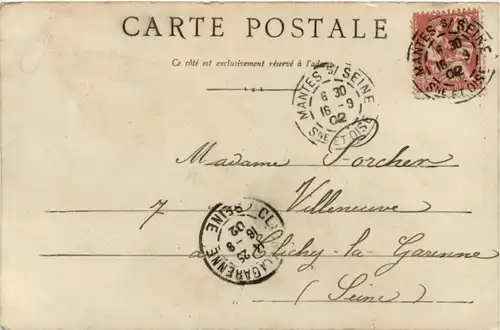 CARTE POSTALE
Ce côté est exclusivement réservé à l'adresse
MANTES S/ SEINE
6 30
16 - 9
02
SNE ET OISE
MANTES S/ SEINE
6 30
16 - 9
02
SNE ET OISE
Madame Porcher
7 Villeneuve
à Clichy-la-Garenne
(Seine)
CL LAGARENNE
25
16 - 9
02
SEINE